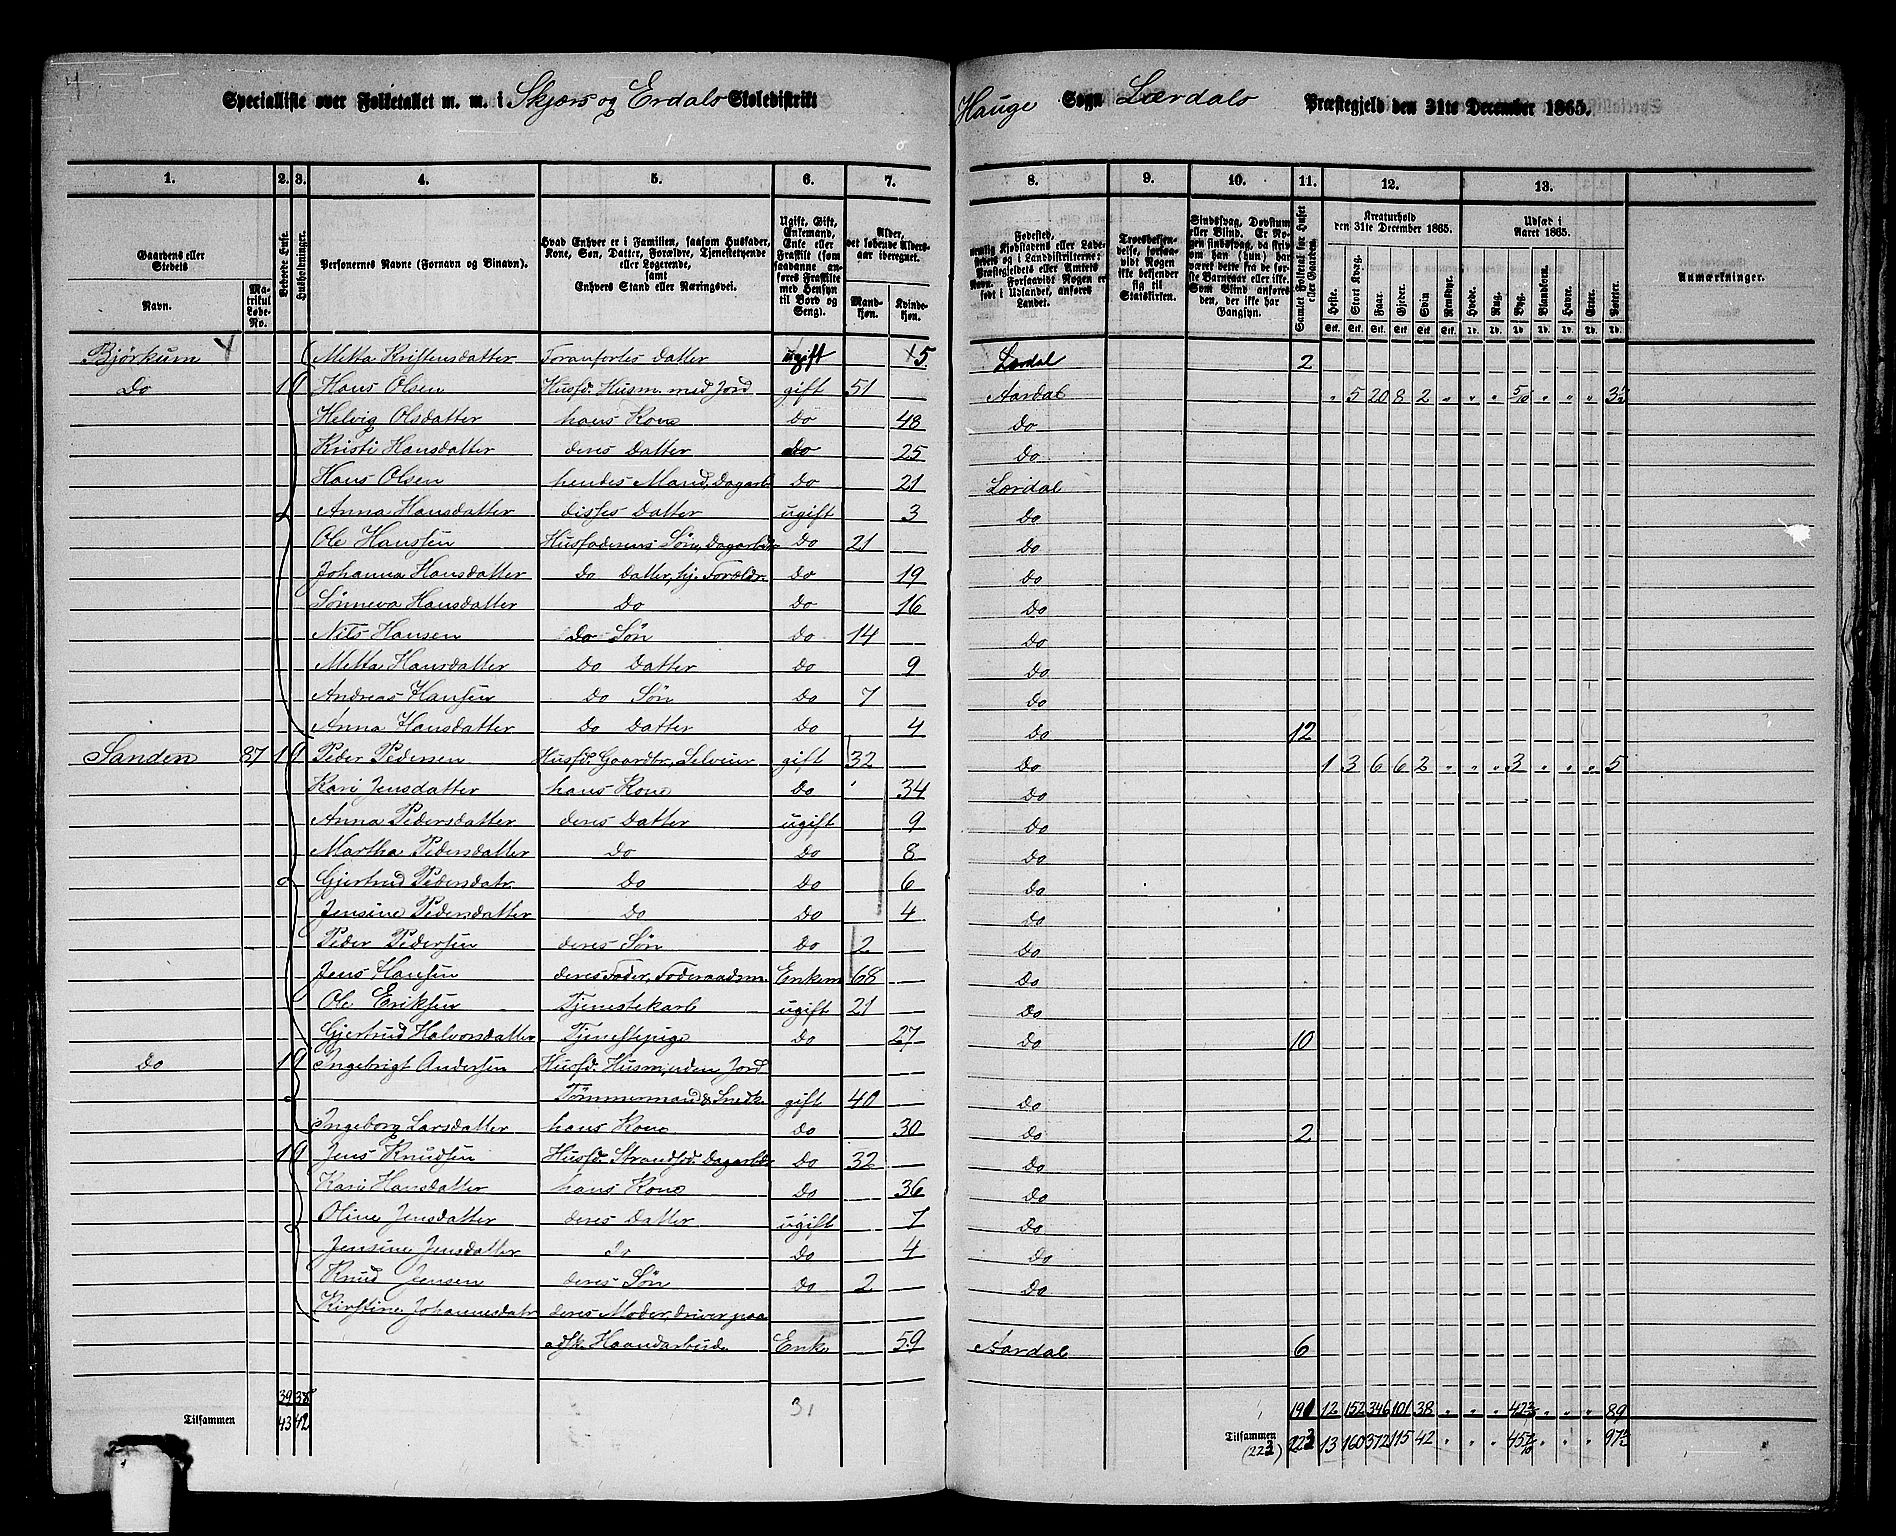 4
Specialliste over Folketallet m. m. i Skjærs og Erdals Skoledistrikt Hauge Sogn Lærdals Præstegjeld den 31te December 1865.
1. 2. 3. 4. 5. 6. 7. 8. 9. 10. 11. 12. 13.
Gaardens eller Stedets
Navn.
Matrikul Løbe-No.
Beboede Huse.
Husholdninger.
Personernes Navne (Fornavn og Binavn).
Hvad Enhver er i Familien, saasom Husfader, Kone, Søn, Datter, Forældre, Tjenestetyende eller Logerende,
samt
Enhvers Stand eller Næringsvei.
Ugift, Gift, Enkemand, Enke eller Fraskilt (som saadanne anføres Fraskilte med Hensyn til Bord og Seng).
Alder, det løbende Alders-aar iberegnet.
Mandkøn. Kvindekøn.
Fødested,
Troesbekjendelse, forsaavidt Nogen ikke bekjender sig til Statskirken.
Samlet Folketal for Huset eller Gaarden.
Kreaturhold den 31te December 1865.
Udsæd i Aaret 1865.
Anmærkninger.
Heste. Stort Kvæg. Faar. Gjeder. Svin. Rensdyr. Hvede. Rug. Byg. Blandkorn. Havre. Erter. Poteter.
Bjørkum Metta Kristensdatter Foranførtes Datter ugift 5 Lærdal 2
Do 1 1 Hans Olsen Husfd. Husm. med Jord gift 51 Aardal 5 20 8 2
Helvig Olsdatter hans Kone Do 48 Do
Kristi Hansdatter deres Datter Do 25 Do
Hans Olsen hendes Mand, Dagarb. Do 21 Lærdal
Anna Hansdatter disses Datter ugift 3 Do
Ole Hansen Husfaderens Søn, Dagarbdr Do 21 Do
Johanna Hansdatter Do Datter, hj. Forældr. Do 19 Do
Sønneva Hansdatter Do Do 16 Do
Nils Hansen Do Søn Do 14 Do
Metta Hansdatter Do Datter Do 9 Do
Andreas Hansen Do Søn Do 7 Do
Anna Hansdatter Do Datter Do 4 Do 12
Sanden 87 1 1 Peder Pedersen Husfd. Gaardbr, Selveier gift 32 Do 1 3 6 6 2 3 5
Kari Jensdatter hans Kone Do 34 Do
Anna Pedersdatter deres Datter ugift 9 Do
Martha Pedersdatter Do Do 8 Do
Gjertrud Pedersdatr Do Do 6 Do
Jensine Pedersdatter Do Do 4 Do
Peder Pedersen deres Søn Do 2 Do
Jens Hansen deres Fader, Føderaadsm. Enkem 68 Do
Ole Eriksen Tjenestekarl ugift 21 Do
Gjertrud Halvorsdatter Tjenestepige Do 27 Do 10
Do 1 1 Ingebrigt Andersen Husfd. Husm, uden Jord
Tømmermand & Snedk. gift 40 Do
Ingeborg Larsdatter hans Kone Do 30 Do 2
1 1 Jens Knudsen Husfd. Strandsd. Dagarbdr Do 32 Do
Kari Hansdatter hans Kone Do 36 Do
Oline Jensdatter deres Datter ugift 7 Do
Jensine Jensdatter Do Do 4 Do
Knud Jensen deres Søn Do 2 Do
Kirstine Johannesdatr deres Moder, driver paa
adsk. Haandarbeide Enke 59 Aardal 6
39 38 31 190 12 152 346 101 38 89
Tilsammen 43 42 Tilsammen (223) 223 13 160 372 115 42